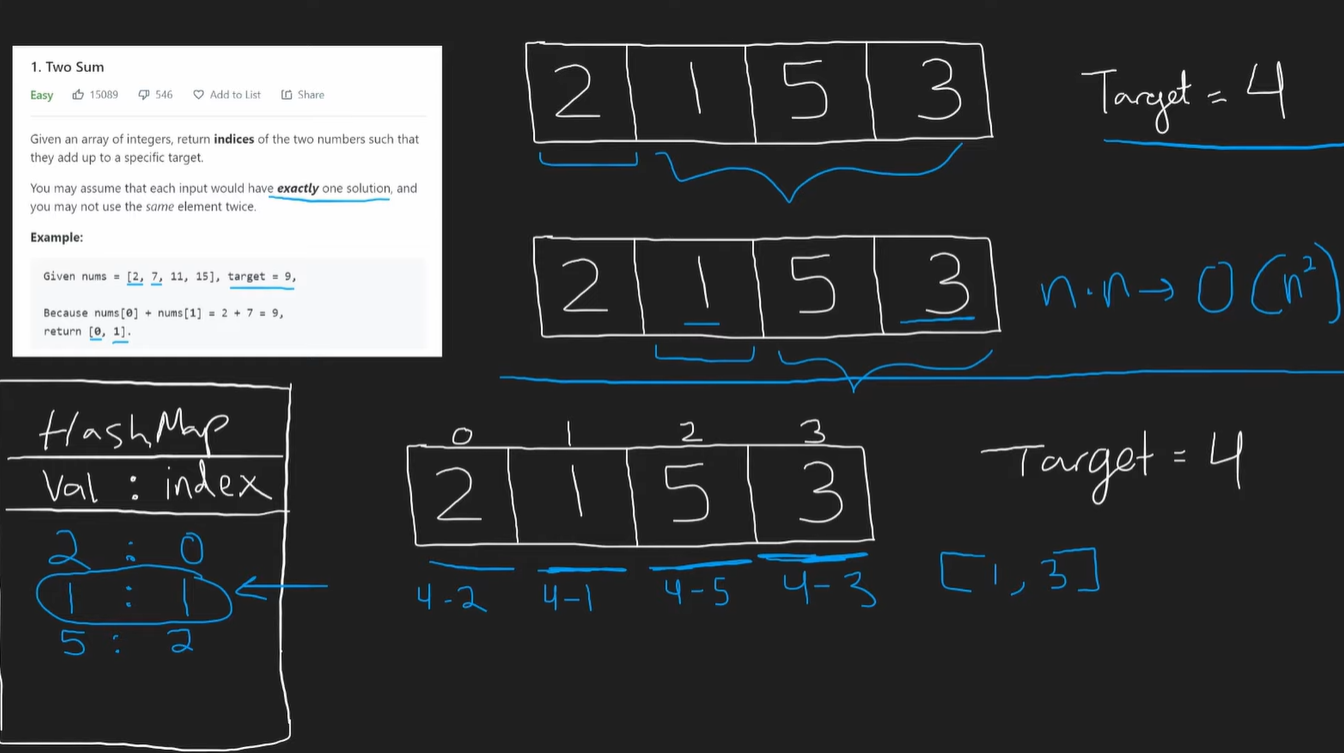 1. Two Sum
Easy 15089 546 Add to List Share
Given an array of integers, return indices of the two numbers such that
they add up to a specific target.
You may assume that each input would have exactly one solution, and
you may not use the same element twice.
Example:
Given nums = [2, 7, 11, 15], target = 9,
Because nums[0] + nums[1] = 2 + 7 = 9,
return [0, 1].
2 1 5 3
Target = 4
2 1 5 3
n · n → O(n²)
HashMap
Val : index
2 : 0
1 : 1
5 : 2
0 1 2 3
2 1 5 3
4-2 4-1 4-5 4-3
Target = 4
[1, 3]